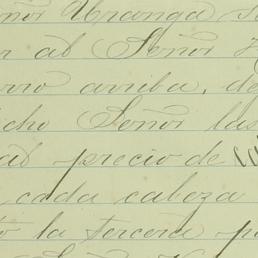 ñor Uranga
r al Señor
rro arriba, de
cho Señor las
al precio de
cada cabeza
la tercera p